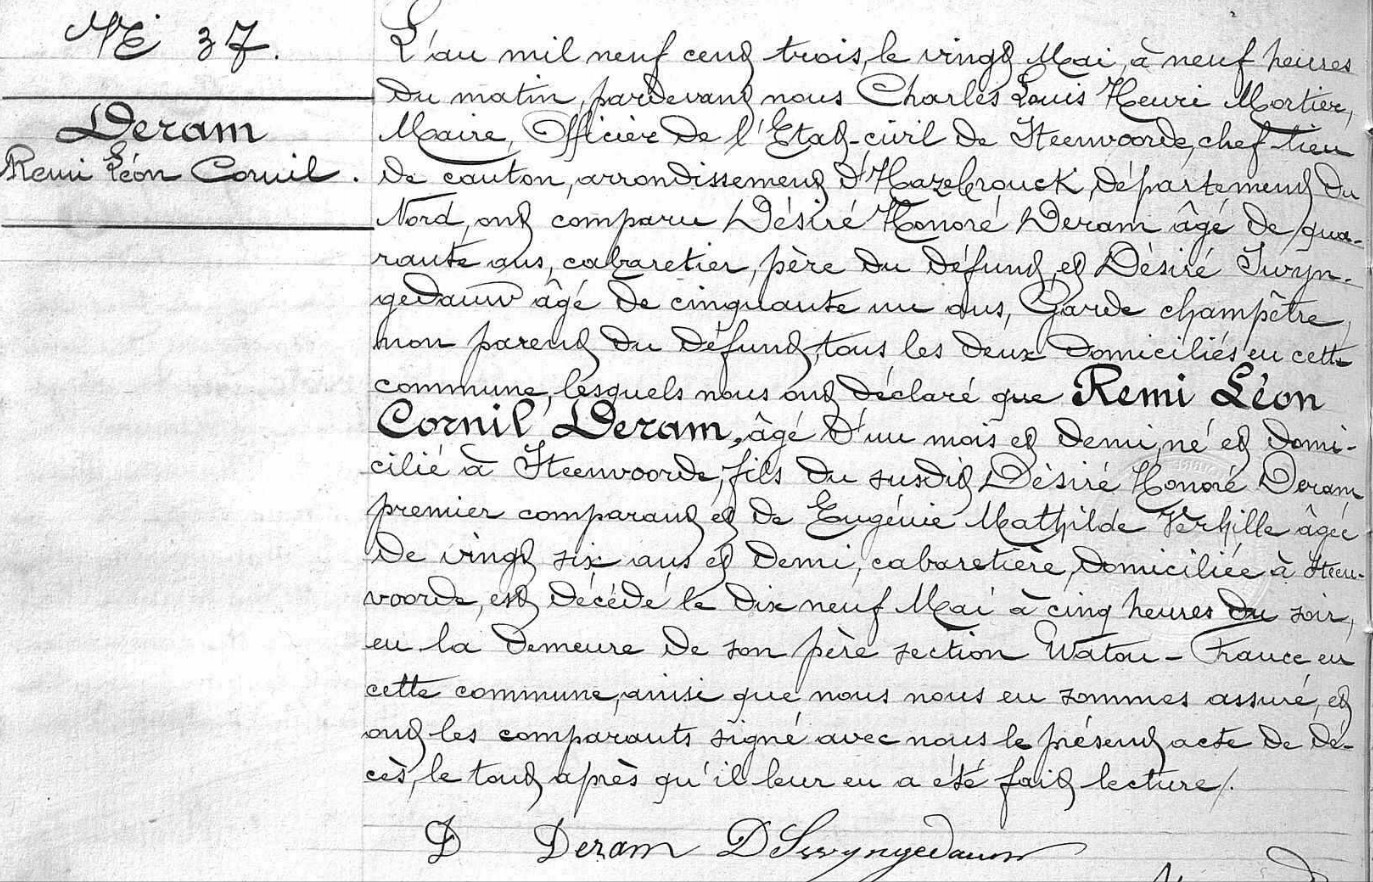 N° 37.
Deram
Remi Léon Cornil.
L'an mil neuf cent trois, le vingt Mai, à neuf heures
du matin, pardevant nous Charles Louis Henri Mortier,
Maire, Officier de l'Etat-civil de Steenvoorde, chef-lieu
de canton, arrondissement d'Hazebrouck, département du
Nord, ont comparu Désiré Honoré Deram âgé de qua-
rante ans, cabaretier, père du défunt, et Désiré Swyn-
gedauw âgé de cinquante un ans, Garde champêtre,
non parent du défunt, tous les deux domiciliés en cette
commune, lesquels nous ont déclaré que Remi Léon
Cornil Deram, âgé d'un mois et demi, né et domi-
cilié à Steenvoorde, fils du susdit Désiré Honoré Deram
premier comparant et de Eugénie Mathilde Verhille âgée
de vingt six ans et demi, cabaretière, domiciliée à Steen-
voorde, est décédé le dix neuf Mai à cinq heures du soir,
en la demeure de son père section Watou-France en
cette commune, ainsi que nous nous en sommes assuré, et
ont les comparants signé avec nous le présent acte de dé-
cès, le tout après qu'il leur en a été fait lecture /.
D Deram D Swyngedauw